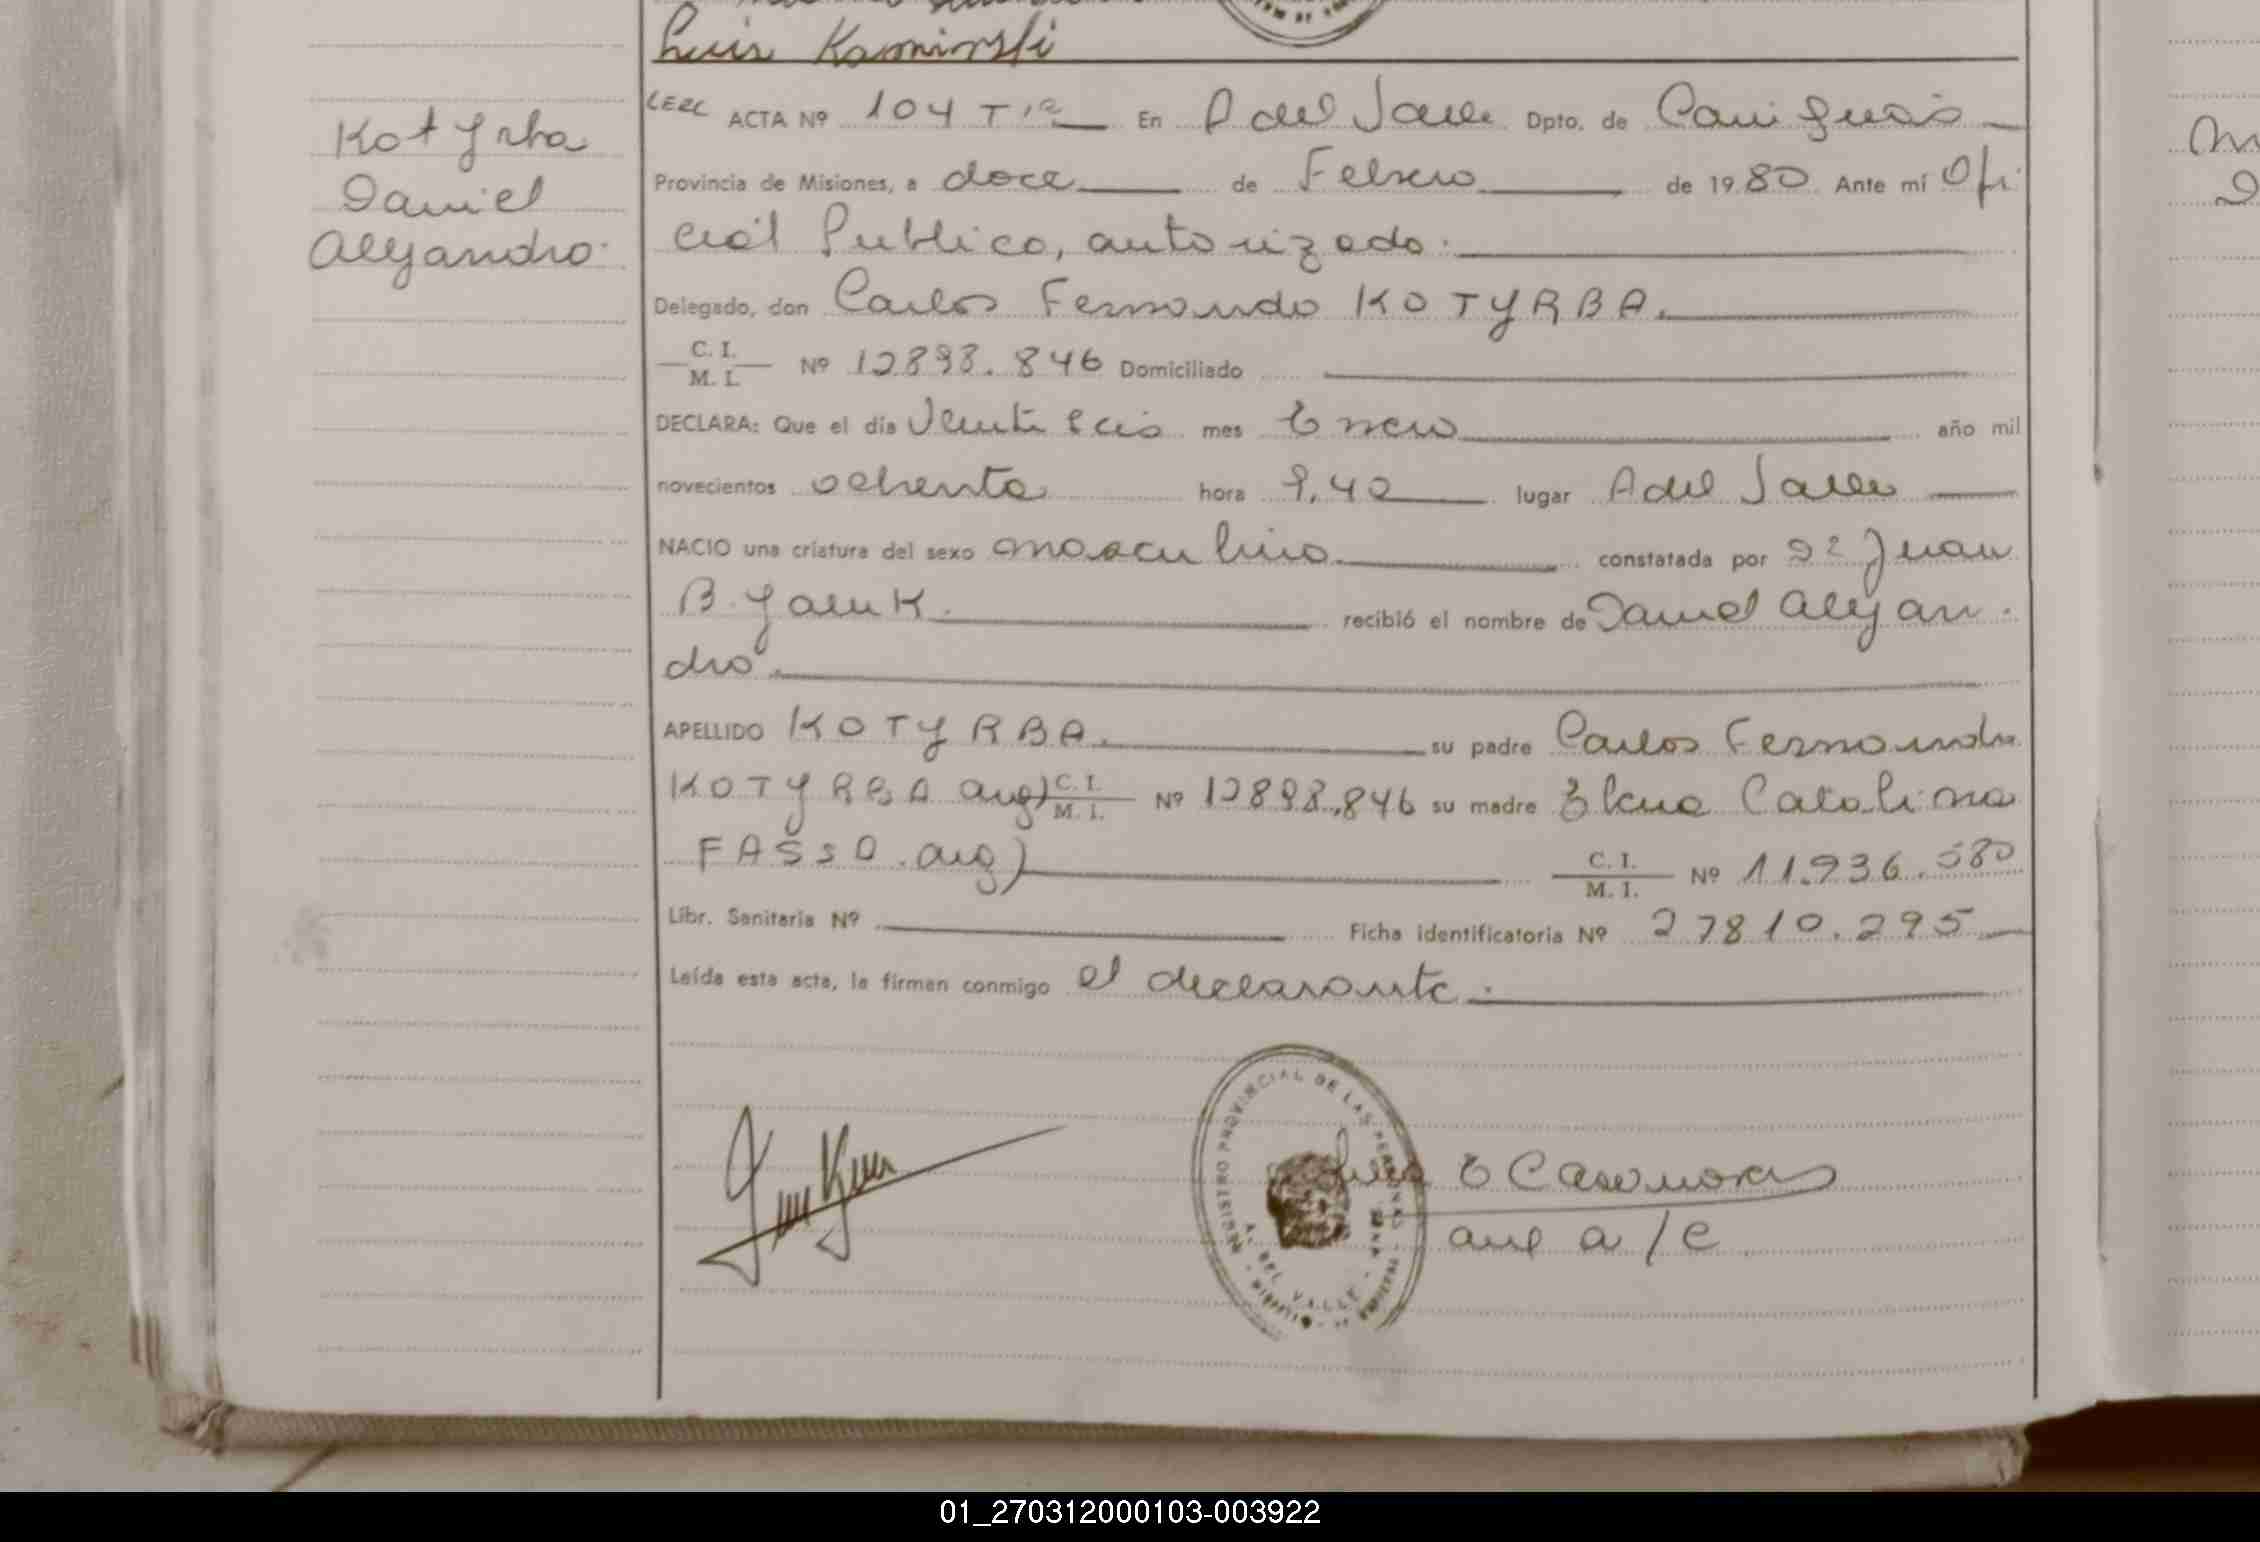 Luis Kaminski
Kotyrba
Daniel
Alejandro.
ACTA Nº 104 T 1º En A del Valle Dpto. de Cainguás
Provincia de Misiones, a doce de Febrero de 1980 Ante mí Ofi
cial Publico, autorizado.
Delegado, don Carlos Fernando KOTYRBA.
C. I.
M. I. Nº 12898.846 Domiciliado
DECLARA: Que el día Veinti seis mes Enero año mil
novecientos ochenta hora 9,40 lugar A del Valle
NACIO una criatura del sexo masculino constatada por Dr Juan
B. recibió el nombre de Daniel Alejan
dro
APELLIDO KOTYRBA. su padre Carlos Fernando
KOTYRBA arg) C. I.
M. I. Nº 12898.846 su madre Elena Catalina
FASSO. arg) C. I.
M. I. Nº 11.936.580
Libr. Sanitaria Nº Ficha identificatoria Nº 27810.295
Leída esta acta, la firman conmigo el declarante.
REGISTRO PROVINCIAL DE LAS PERSONAS
A. DEL VALLE
E Casanovas
a/c
01_270312000103-003922